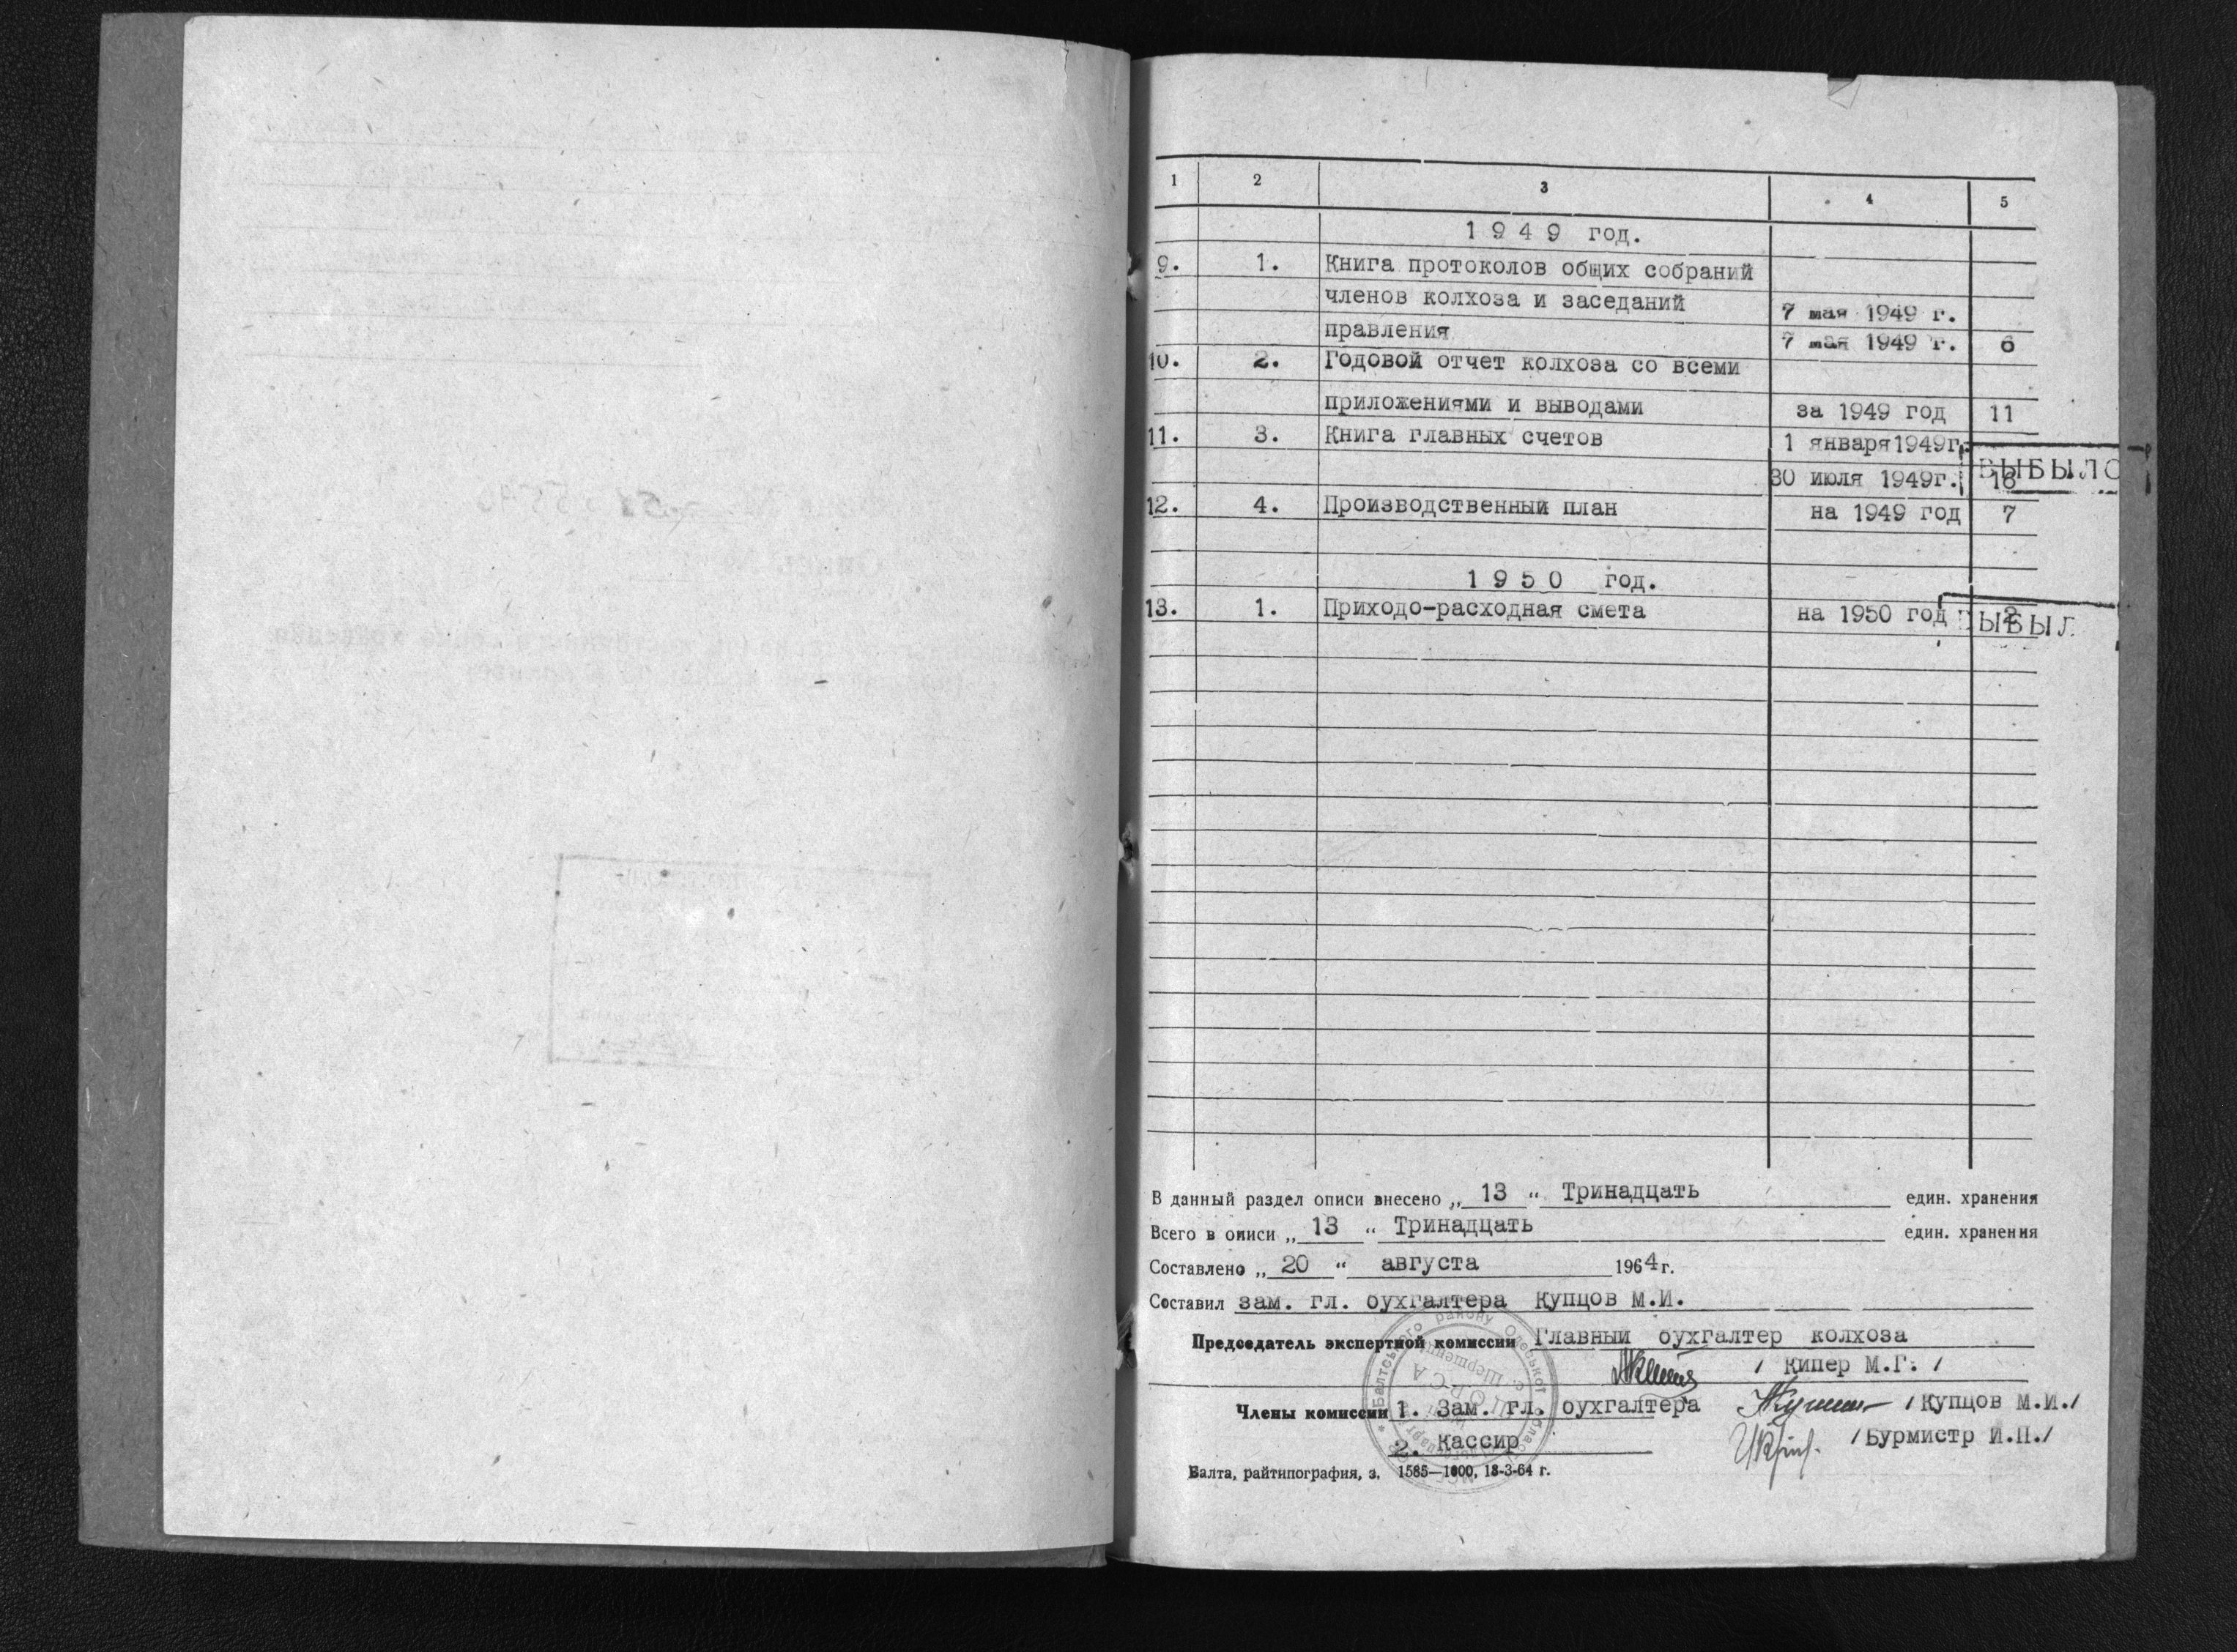 1 2 3 4 5
1949 год.
9. 1. Книга протоколов общих собраний
членов колхоза и заседаний 7 мая 1949 г.
правления 7 мая 1949 г. 6
10. 2. Годовой отчет колхоза со всеми
приложениями и выводами за 1949 год 11
11. 3. Книга главных счетов 1 января1949г.
30 июля 1949г. 16 ВЫБЫЛО
12. 4. Производственный план на 1949 год 7
1950 год.
13. 1. Приходо-расходная смета на 1950 год 2 ВЫБЫЛ
В данный раздел описи внесено „ 13 “ Тринадцать един. хранения
Всего в описи „ 13 “ Тринадцать един. хранения
Составлено „ 20 “ августа 1964 г.
Составил зам. гл. бухгалтера Купцов М.И.
Председатель экспертной комиссии Главный бухгалтер колхоза
/ Кипер М.Г. /
Члены комиссии 1. Зам. гл. бухгалтера / Купцов М.И./
2. Кассир /Бурмистр И.П./
Балта, райтипография, з. 1585—1000, 18-3-64 г.
Балтського району Одеської
ЩОРСА